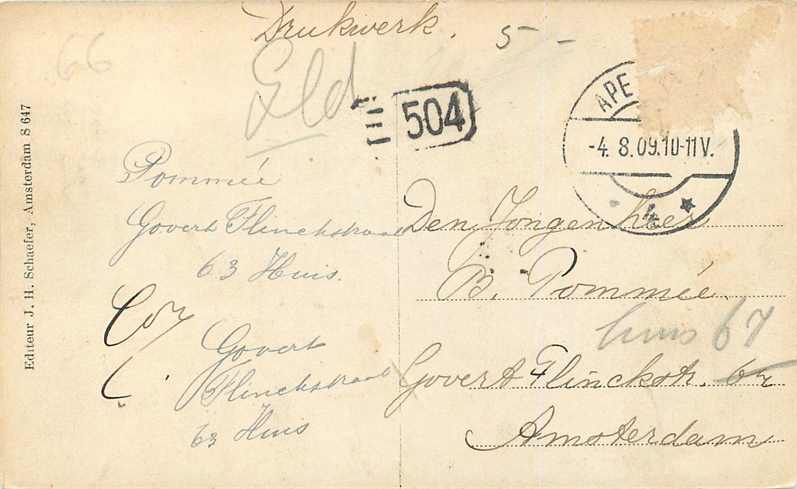 Drukwerk. 5 -
66
Eld
504
APE
-4. 8. 09.10-11V.
Editeur J. H. Schaefer, Amsterdam S 647
Pommée
Govert Flinckstraat
63 Huis.
Govert
Flinckstraat
63 Huis
Den Jongenheer
B. Pommée.
huis 67
Govert Flinckstr.
Amsterdam